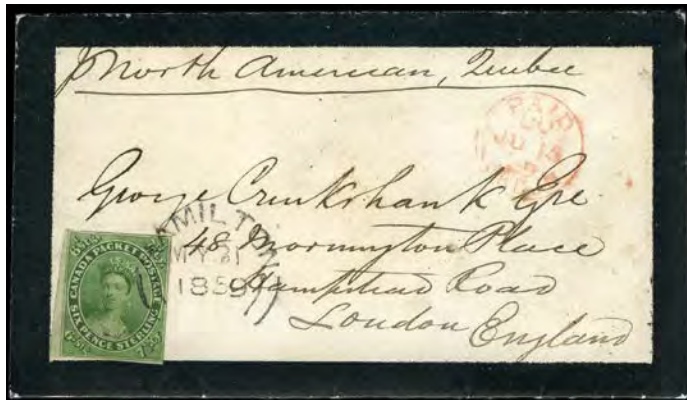 p North American, Quebec
PAID
JU 13
George Cruikshank Esqre
48 Mornington Place
Hampstead Road
London England
HAMILTON
MY 21
1859
CANADA PACKET POSTAGE
SIX PENCE STERLING